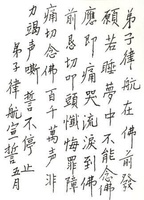 弟子律航在佛前發
願若睡夢中不能念佛
應即痛哭流淚到佛
前恳切叩頭懺悔罪障
痛切念佛百千萬聲非
力竭聲嘶誓不停止
弟子律航宣誓五月